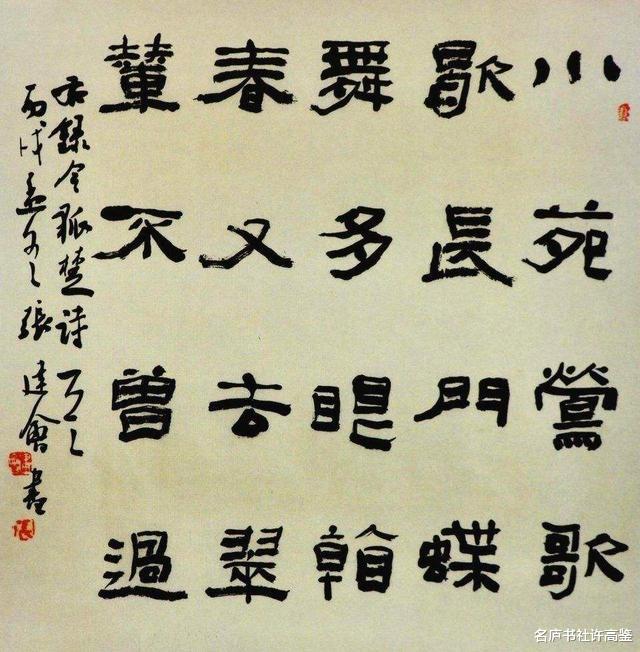 小苑鶯歌
歇長門蝶
舞多眼看
春又去翠
輦不曾過
右錄令狐楚詩
丙戌孟冬張建會書
名庐书社许高鉴